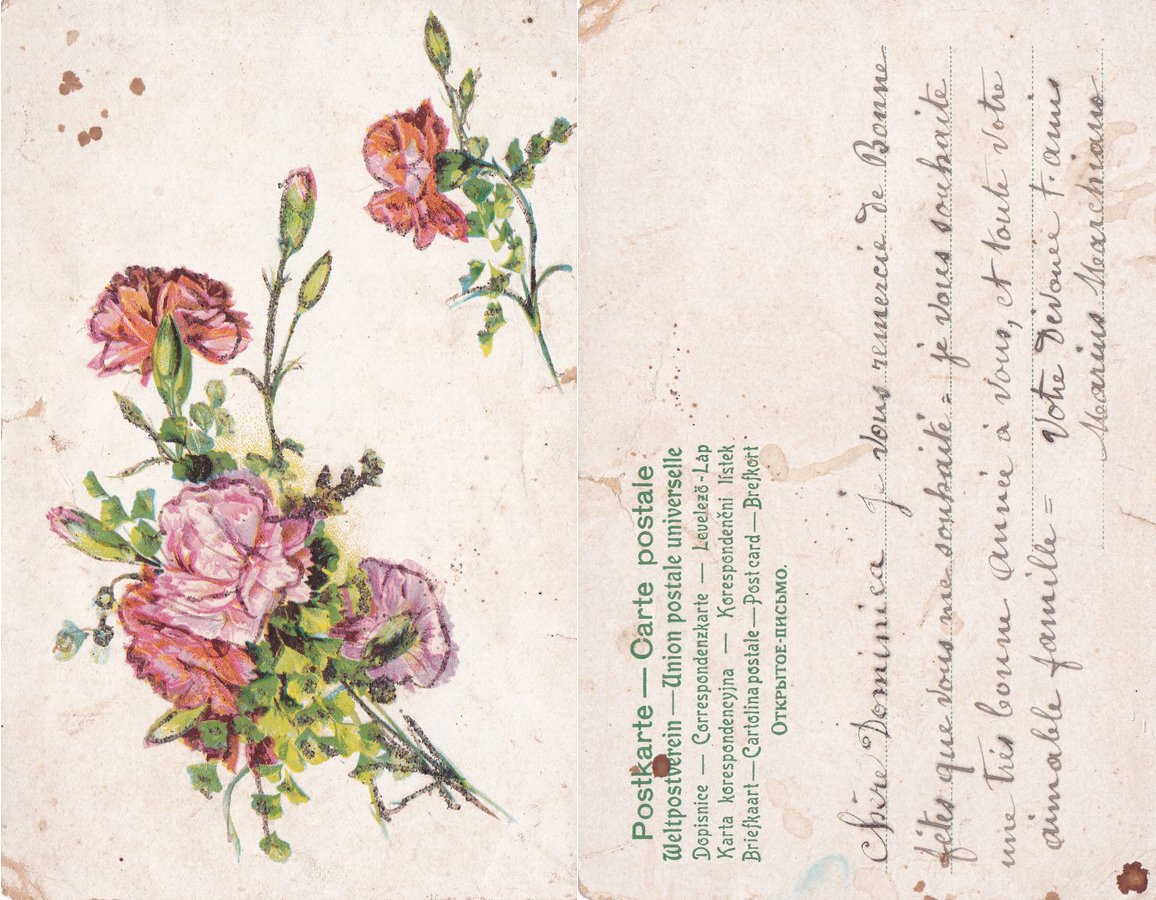 Postkarte — Carte postale
Weltpostverein — Union postale universelle
Dopisnice — Correspondenzkarte — Levelező-Lap
Karta korespondencyjna — Korespondenční lístek
Briefkaart — Cartolina postale — Post card — Brefkort
Открытое-письмо.
Chère Dominica je vous remercie de Bonne
fêtes que vous me souhaité = je vous souhaite
une très bonne année à vous, et toute votre
aimable famille =
Votre Dévoué F. amis
Marius Marchiano